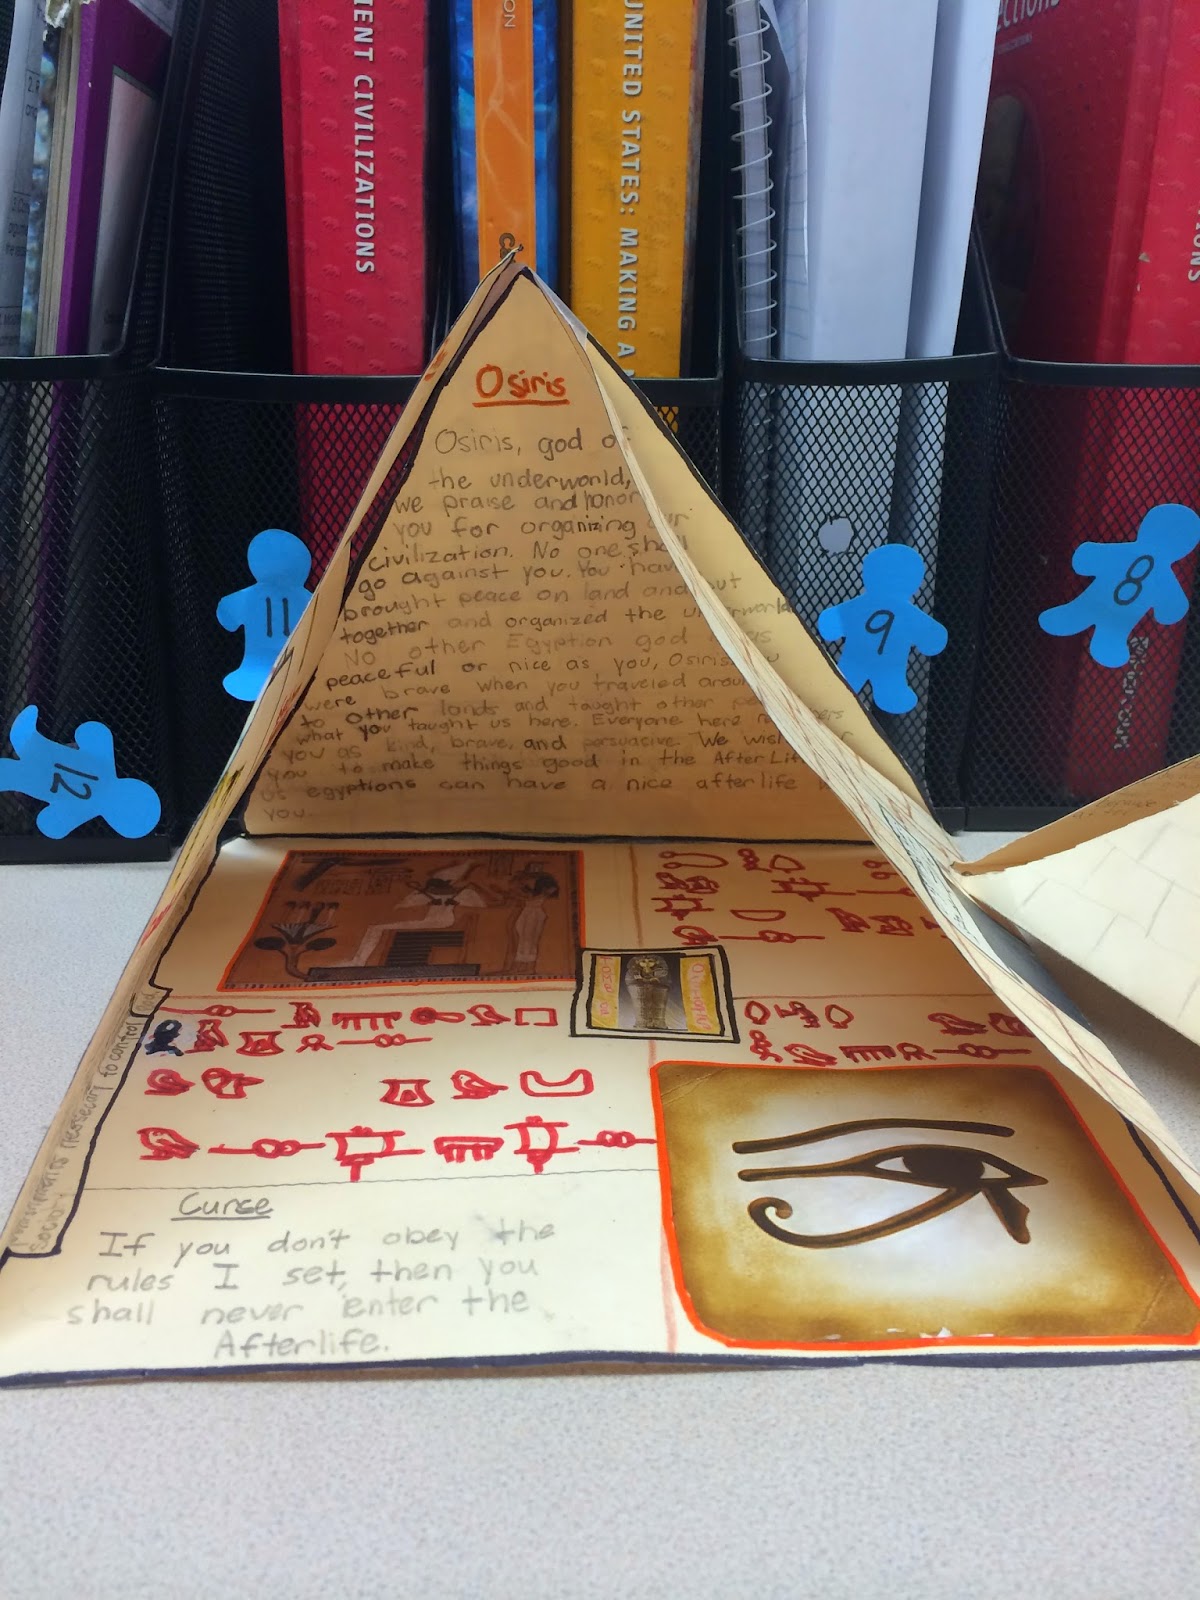 ENT CIVILIZATIONS
ON
UNITED STATES: MAKING A
IONS
11
9
8
12
Osiris
Osiris, god of
the underworld,
we praise and honor
you for organizing our
civilization. No one shall
go against you. You have
brought peace on land and put
together and organized the underworld
No other Egyption god was
peaceful or nice as you, Osiris.
were brave when you traveled
to other lands and taught other
what you taught us here. Everyone here
you as kind, brave, and persuasive. We wish
you to make things good in the After Life
egyptions can have a nice afterlife
you.
necessary to control
society
Curse
If you don't obey the
rules I set, then you
shall never enter the
Afterlife.